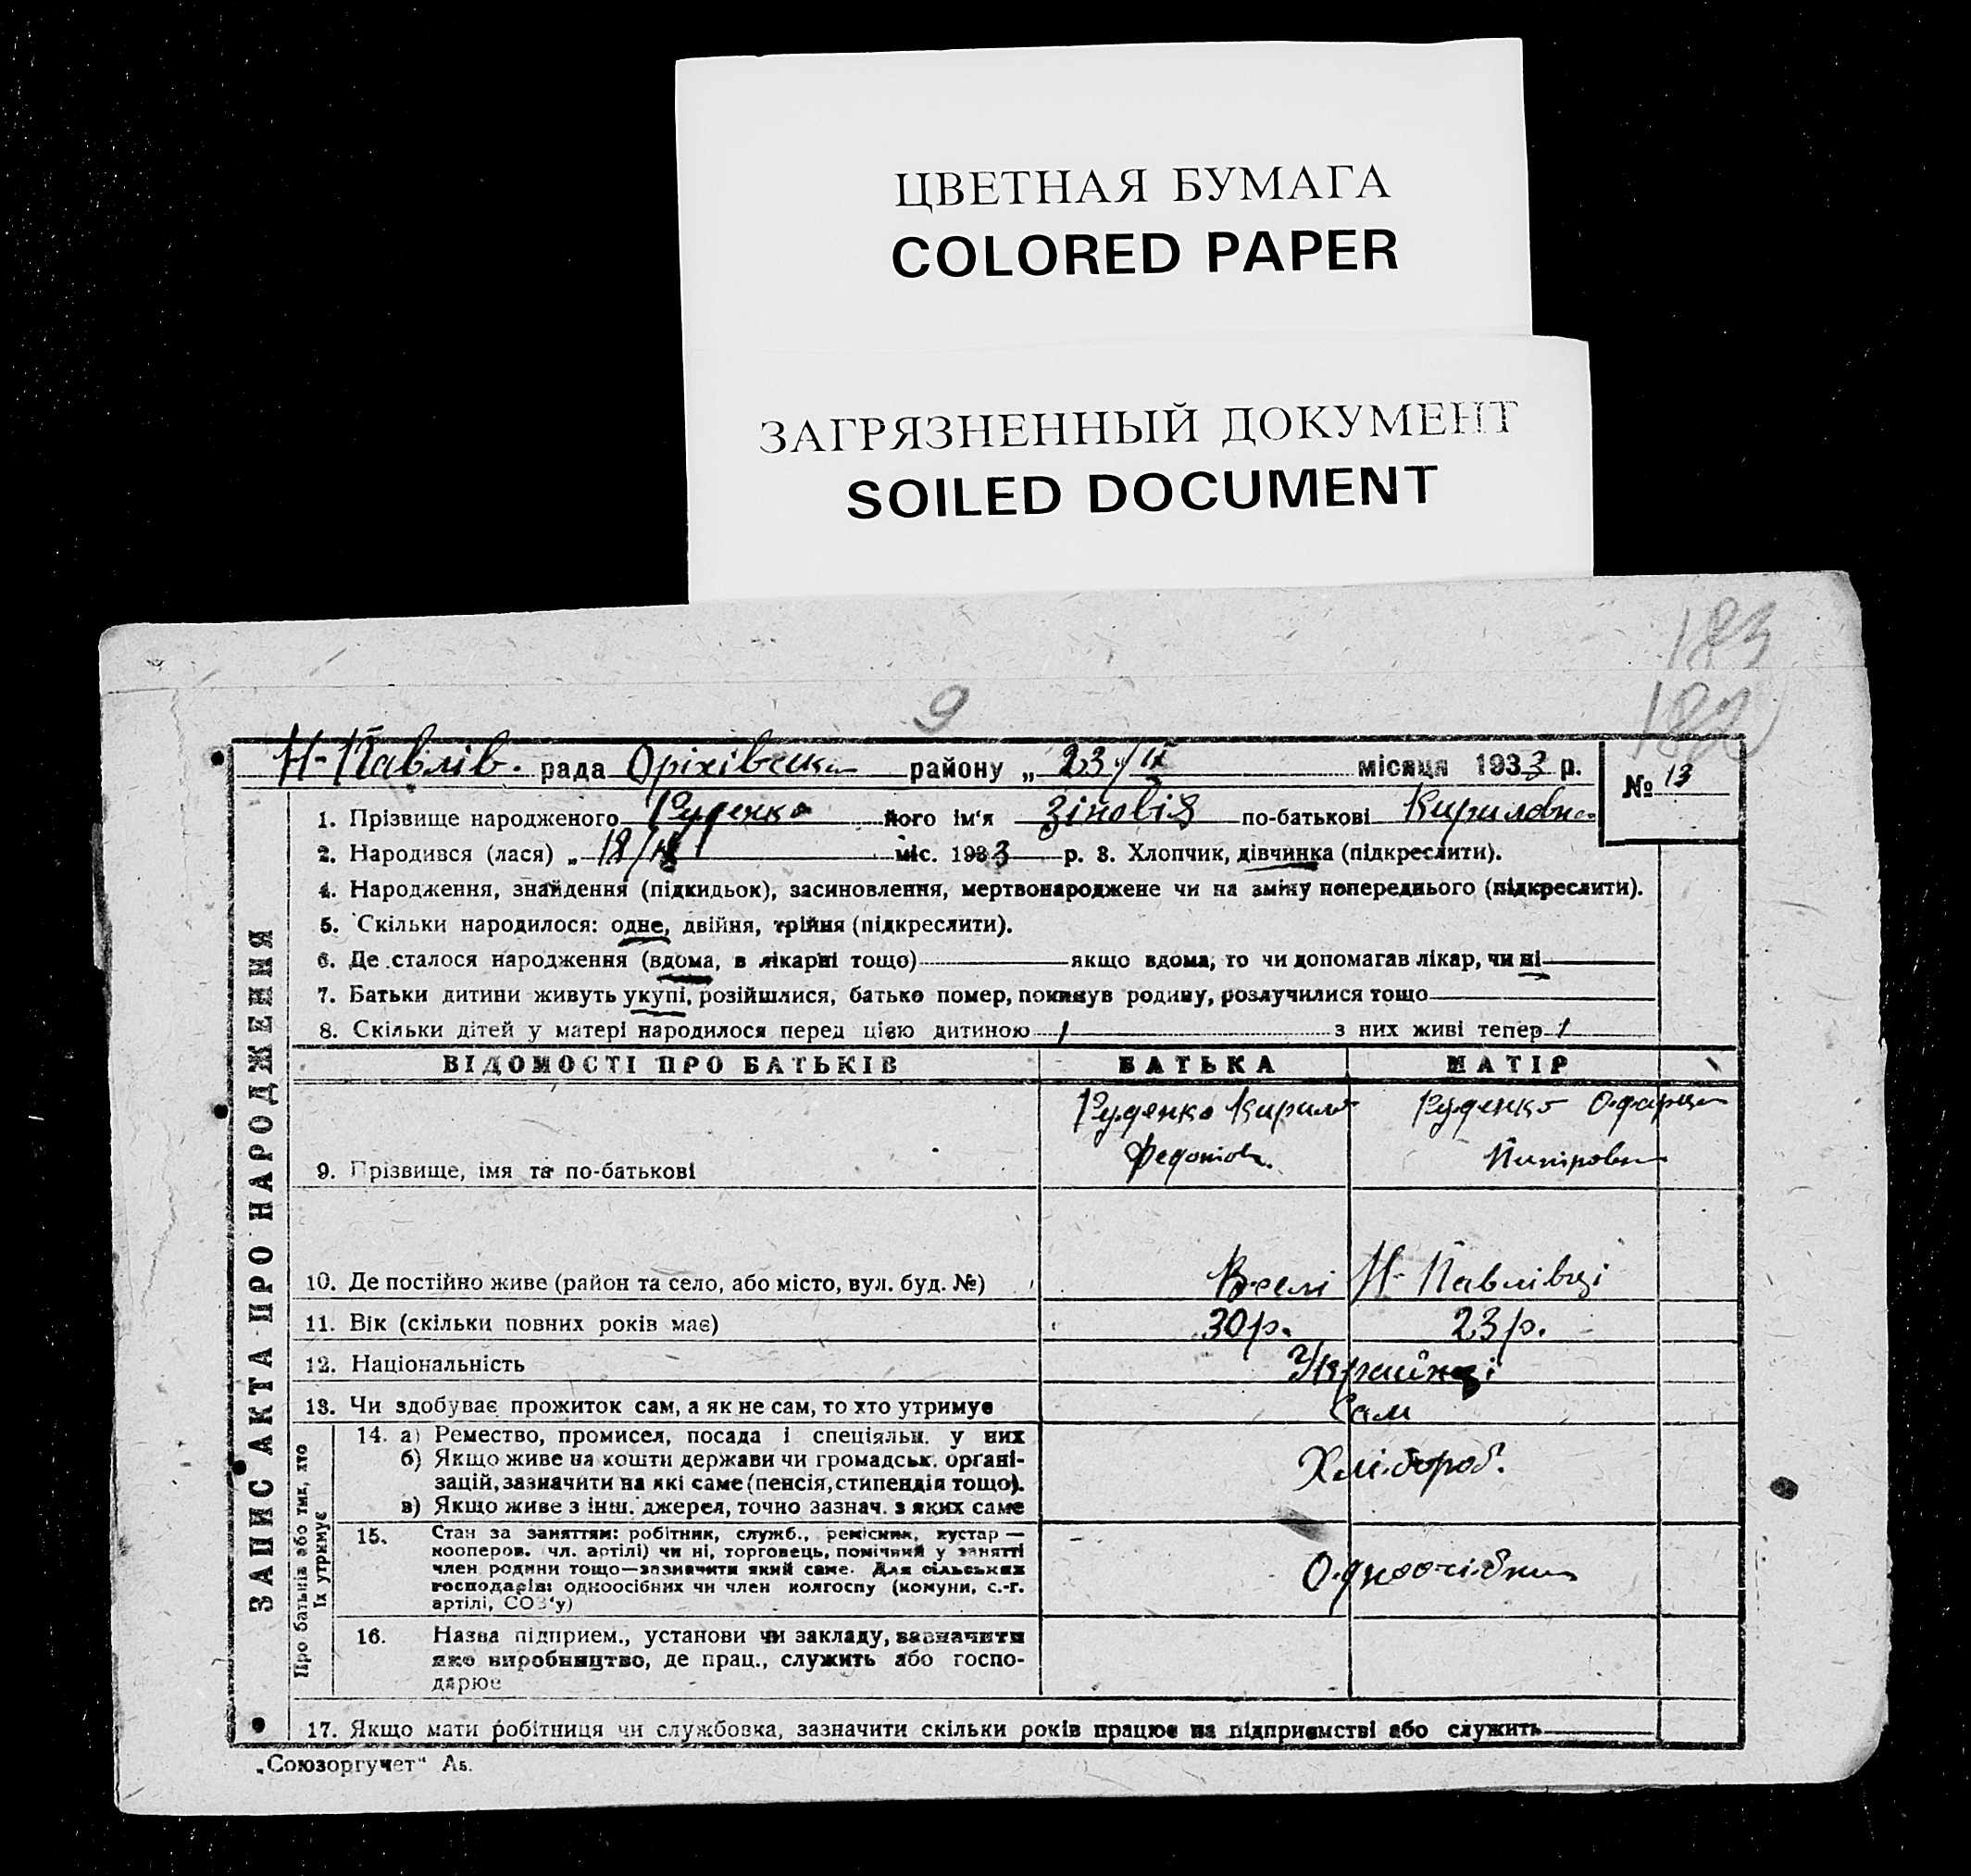 ЦВЕТНАЯ БУМАГА
COLORED PAPER
ЗАГРЯЗНЕННЫЙ ДОКУМЕНТ
SOILED DOCUMENT
183
182
9
Н-Павлів. рада Оріхівськ району „ 23 " ІХ місяця 1933 р.
№ 13
ЗАПИС АКТА ПРО НАРОДЖЕННЯ
1. Прізвище народженого Руденко його ім'я Зіновія по-батькові Кириловна
2. Народився (лася) „ 18/ міс. 1933 р. 3. Хлопчик, дівчинка (підкреслити).
4. Народження, знайдення (підкидьок), засиновлення, мертвонароджене чи на зміну попереднього (підкреслити).
5. Скільки народилося: одне, двійня, трійня (підкреслити).
6. Де сталося народження (вдома, в лікарні тощо) якщо вдома, то чи допомагав лікар, чи ні
7. Батьки дитини живуть укупі, розійшлися, батько помер, покинув родину, розлучилися тощо
8. Скільки дітей у матері народилося перед цією дитиною 1 з них живі тепер 1
ВІДОМОСТІ ПРО БАТЬКІВ БАТЬКА МАТІР
Руденко Кирило Руденко Одарка
Федотов.
9. Прізвище, імя та по-батькові
10. Де постійно живе (район та село, або місто, вул. буд. №) В селі Н-Павлівці
11. Вік (скільки повних років має) 30 р. 23 р.
12. Національність Українці
13. Чи здобуває прожиток сам, а як не сам, то хто утримує Сам
Про батьків або тих, хто їх утримує
14. а) Ремество, промисел, посада і спеціяльн. у них
б) Якщо живе на кошти держави чи громадськ. органі-
зацій, зазначити на які саме (пенсія, стипендія тощо). Хлібороб.
в) Якщо живе з інш. джерел, точно зазнач. з яких саме
15. Стан за заняттям: робітник, служб., ремісник, кустар —
кооперов. чл. артілі) чи ні, торговець, помічний у занятті
член родини тощо—зазначити який саме. Для сільських
господарів: одноосібних чи член колгоспу (комуни, с.-г. Одноосібник
артілі, СОЗ'у)
16. Назва підприєм., установи чи закладу, зазначити
яке виробництво, де прац., служить або госпо-
дарює
17. Якщо мати робітниця чи службовка, зазначити скільки років працює на підприємстві або служить
„Союзоргучет" А5.